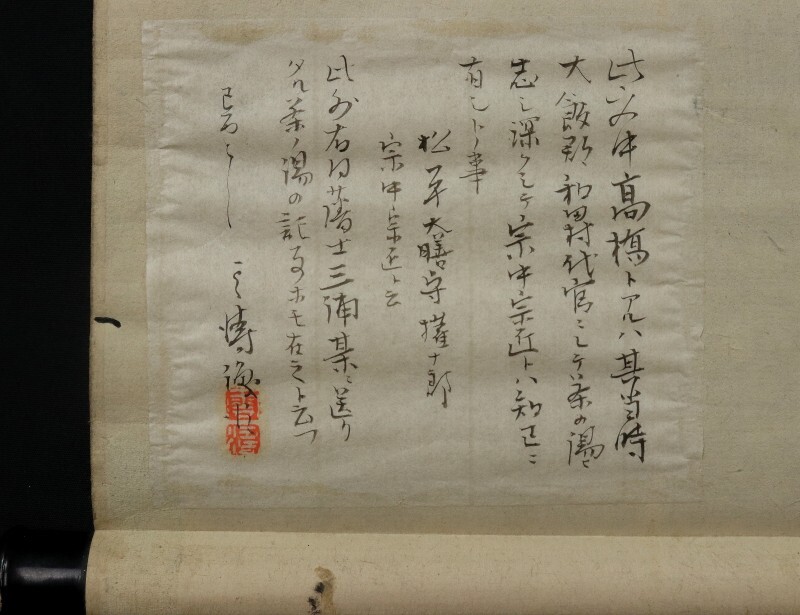 此文中高橋トアルハ其当時
大飯郡和田村代官ニシテ茶の湯ニ
志シ深クシテ宗中宗近トハ知己ニ
有シトノ事
松平大膳守権十郎
宗中宗近ト云
此外右同藩士三浦某ニ送リ
タル茶ノ湯の記事ホモ在之ト云フ